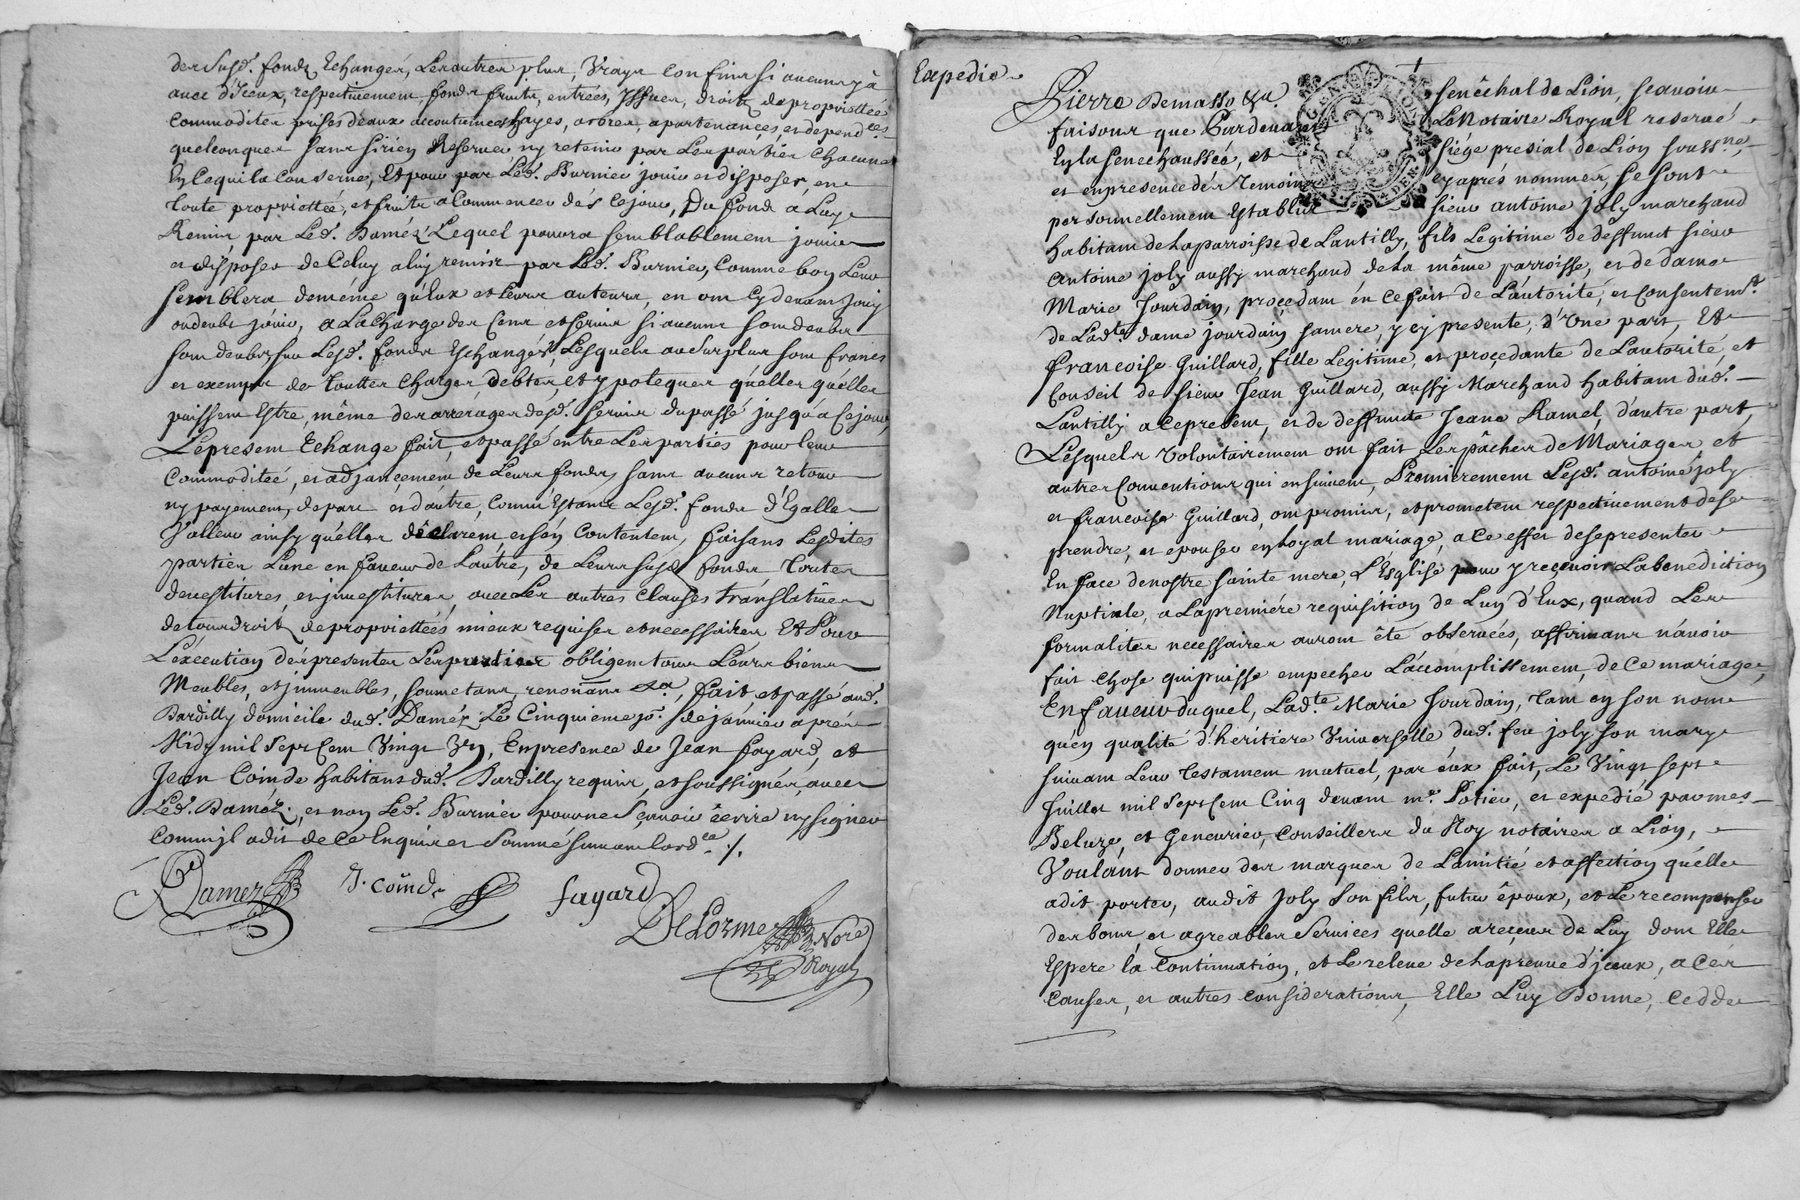 des susd. fonds Echangés, Les autres plus, Vrays confins si aucuns y à
avec d'Iceux, respectivement fonds fruits, entrées, Issues, droits de proprietteé
Commodites prises d'eaux accoutumées hayes, arbres, apartenances, et depend.ces
quelconques sans si rien Reserver ny retenir par Les parties chacune
En Ce qui la Conserne, Et pour par Led. Burnier jouir et disposer, en
toute proprietteé, et fruits a Commencer dés Ce jour, Du fond a Luy
Remis par Led. Daméz Lequel pourra semblablement jouir
et disposer de Celuy a luy remis par Led. Burnier, Comme bon Leur
semblera de meme qu'Eux et Leurs auteurs, en ont Cy devant jouy
ou deub jouir, a La Charge des Cens et servis si aucuns sont deubs
sont deubs sur Lesd. fonds Eschangés Lesquels au surplus sont francs
et exempts de touttes Charges, debtes, et ypoteques qu'elles qu'elles
puissent Estre, même des arrerages desd. servis du passé jusqu'a Ce jour,
Le present Echange fait, et passé entre Les parties pour leur
Commoditeé, et adjancement de Leurs fonds, sans aucuns retour
ny payement, de part et d'autre, Comm'Estants Lesd. fonds d'Egalle
Valleur ainsy qu'elles déclarent, et s'en Contentent, faisans Lesdites
parties L'une en faveur de L'autre, de Leurs susd. fonds toutes
devestitures, et jnvestitures, avec Les autres Clauses translatives
de tous droits de proprietteés mieux requises et necessaires Et Pour
L'execution des presentes Les parties obligent tous Leurs biens
Meubles, et jmmeubles, soumetans, renonans &a, fait et passé aud.
Dardilly domicile dud. Daméz Le Cinquieme jr. de janvier aprés
Midy mil sept Cent Vingt Un, En presence de Jean Fayard, et
Jean Coinde habitans dud. Dardilly requis, et soussignés, avec
Led. Daméz, et non Led. Burnier pour ne sçavoir écrire ny signer
Comm'jl a dit de Ce Enquis et sommé suivant Lord.ce ./.
Damez
J. Coinde
fayard
DeLorme Nore
Royal
Expedié
Pierre Demasso &a. senêchal de Lion, scavoir
faisons que Pardevant Le Notaire Royal reservé
En la senechausseé, et siége presial de Lion souss.né,
et en presence dés temoins cy aprés nommés, se sont
personnellement Establis sieur antoine joly marchand
habitant de La parroisse de Lantilly, fils Legitime de deffunct sieur
Antoine joly aussy marchand de La même parroisse, et de dame
Marie Jourdain, proçedant en Ce fait de L'autorité, et Consentem.t
de Lad.te dame jourdain sa mere, y cy presente, d'Une part, Et
françoise Guillard, fille Legitime, et proçedante de L'autorité, et
Conseil de sieur Jean Guillard, aussy Marchand habitant dud.
Lantilly a Ce present, et de deffuncte Jeane Ramel, d'autre part,
Lesquels Volontairement ont fait Les pâches de Mariages et
autres Conventions qui ensuivent, Premierement Lesd. antoine joly
et françoise Guillard, ont promis, et prometent respectivement de se
prendre, et epouser en Loyal mariage, a Ce effet de se presenter
En face de nostre sainte mere L'Esglise pour y reçevoir La benediction
Nuptiale, a La premiére requisition de L'un d'Eux, quand Les
formalites necessaires auront êté observeés, affirmans n'avoir
fait chose qui puisse empecher L'accomplissement de Ce mariage,
En faveur duquel, Lad.te Marie Jourdain, tant en son nom
qu'en qualité d'heritiere Universelle dud. feu joly son mary
suivant Leur testament mutuel, par eux fait, Le Vingt sept
Juillet mil sept Cent Cinq devant m.e Potier, et expedié par mes.
Beluze, et Genevrier, Conseillers du Roy notaires a Lion,
Voulant donner des marques de L'amitié et affection qu'elle
a dit porter, audit joly son fils, futur époux, et Le recompenser
des bons et agreables services quelle a reçeus de Luy dont Elle
Espere la Continuation, et Le releve de La preuve d'jceux, a Cés
Causes, et autres Considerations, Elle Luy Donne, Cedde